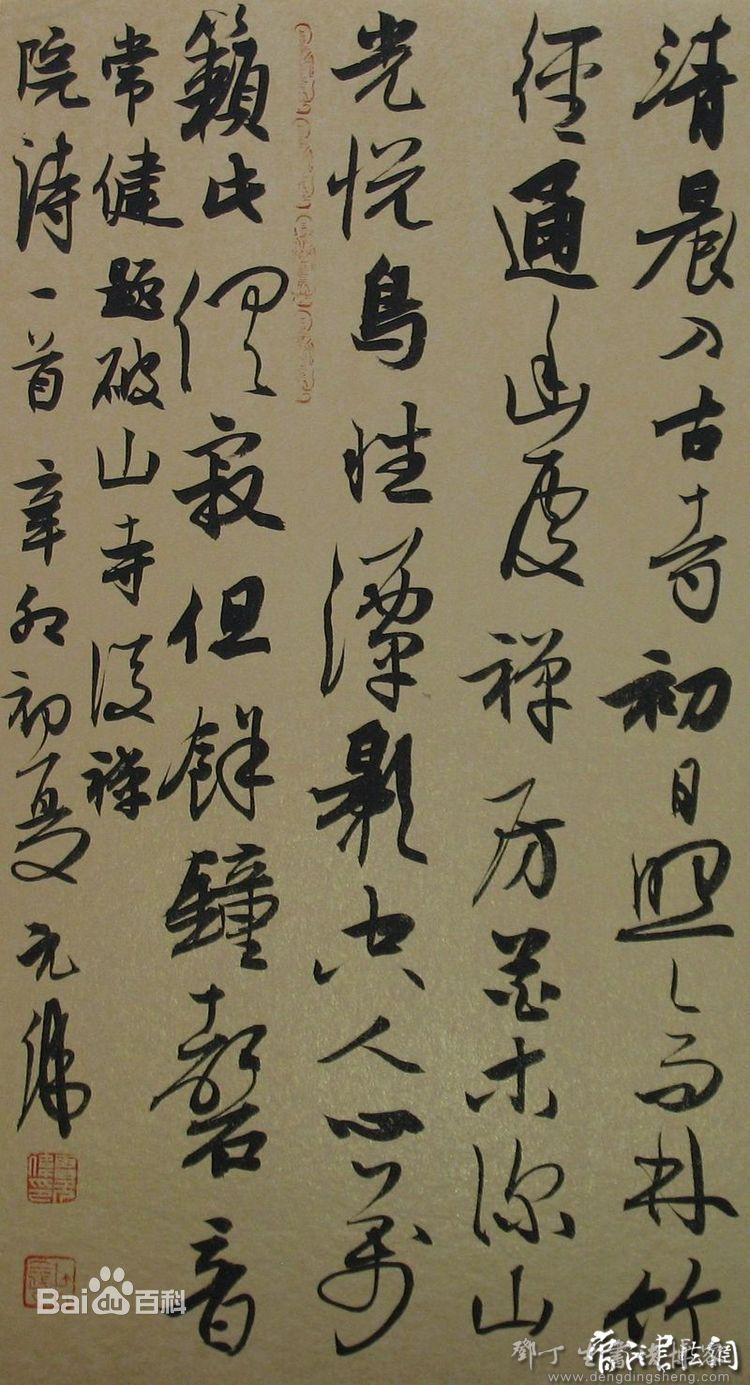 清晨入古寺初日照高林竹
徑通幽處禅房花木深山
光悦鳥性潭影空人心萬
籟此俱寂但餘鐘磬音
常健題破山寺後禅
院詩一首辛卯初夏元偉
Bai du 百科
鄧丁生書法
www.dengdingsheng.com